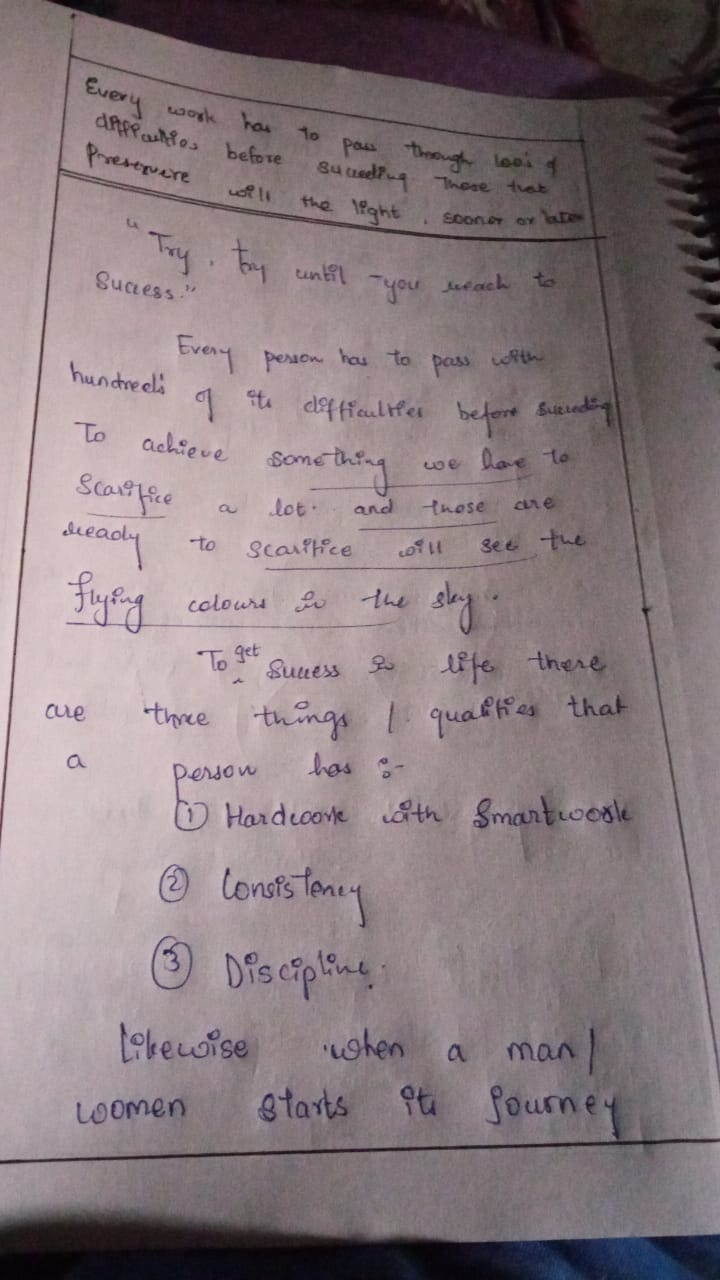 Every work has to pass through 100's of
difficulties before succeeding Those that
Preservere will the light, sooner or later
"Try, try until you reach to
Success."
Every person has to pass with
hundred's of its difficulties before succeding
To achieve something we have to
Scarifice a lot. and those are
ready to scarifice will see the
flying colours in the sky.
To get Success in life there
are three things / qualities that
a person has :-
① Hardwork with Smartwork
② Consistency
③ Discipline.
Likewise when a man/
women starts its journey